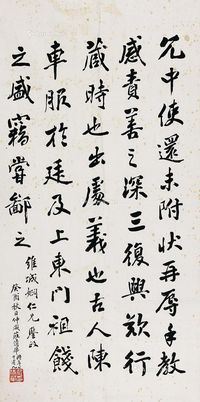 允中使還未附狀再辱手教
感責善之深三復興歎行
藏時也出處義也古人陳
車服於廷及上東門祖餞
之盛竊嘗鄙之
維城姻仁兄鑒政
癸酉秋日仲